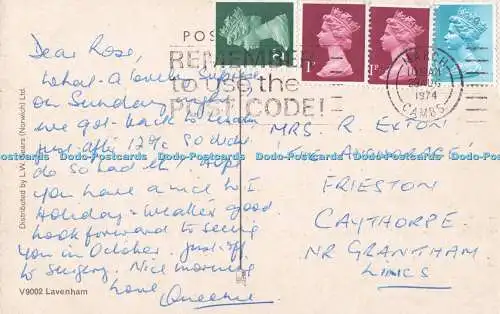 Dear Rose,
What a lovely surprise
on Sunday night
we got back to
just after 12 so didn't
do so bad! Hope
you have a nice W.I.
Holiday & weather good
look forward to seeing
you in October. Just off
to Surgery. Nice morning
Love
Queenie
POST
REMEMBER
to use the
POST CODE!
1P
1P
AM
AUG
1974
CAMBS
MRS. R. EXTON
ANCHORAGE,
FRIESTON
CAYTHORPE
NR GRANTHAM
LINCS
Distributed by L.W. Masters (Norwich) Ltd.
V9002 Lavenham
Dodo-Postcards Dodo-Postcards Dodo-Postcards Dodo-Postcards Dodo-Postcards Dodo-Postcards